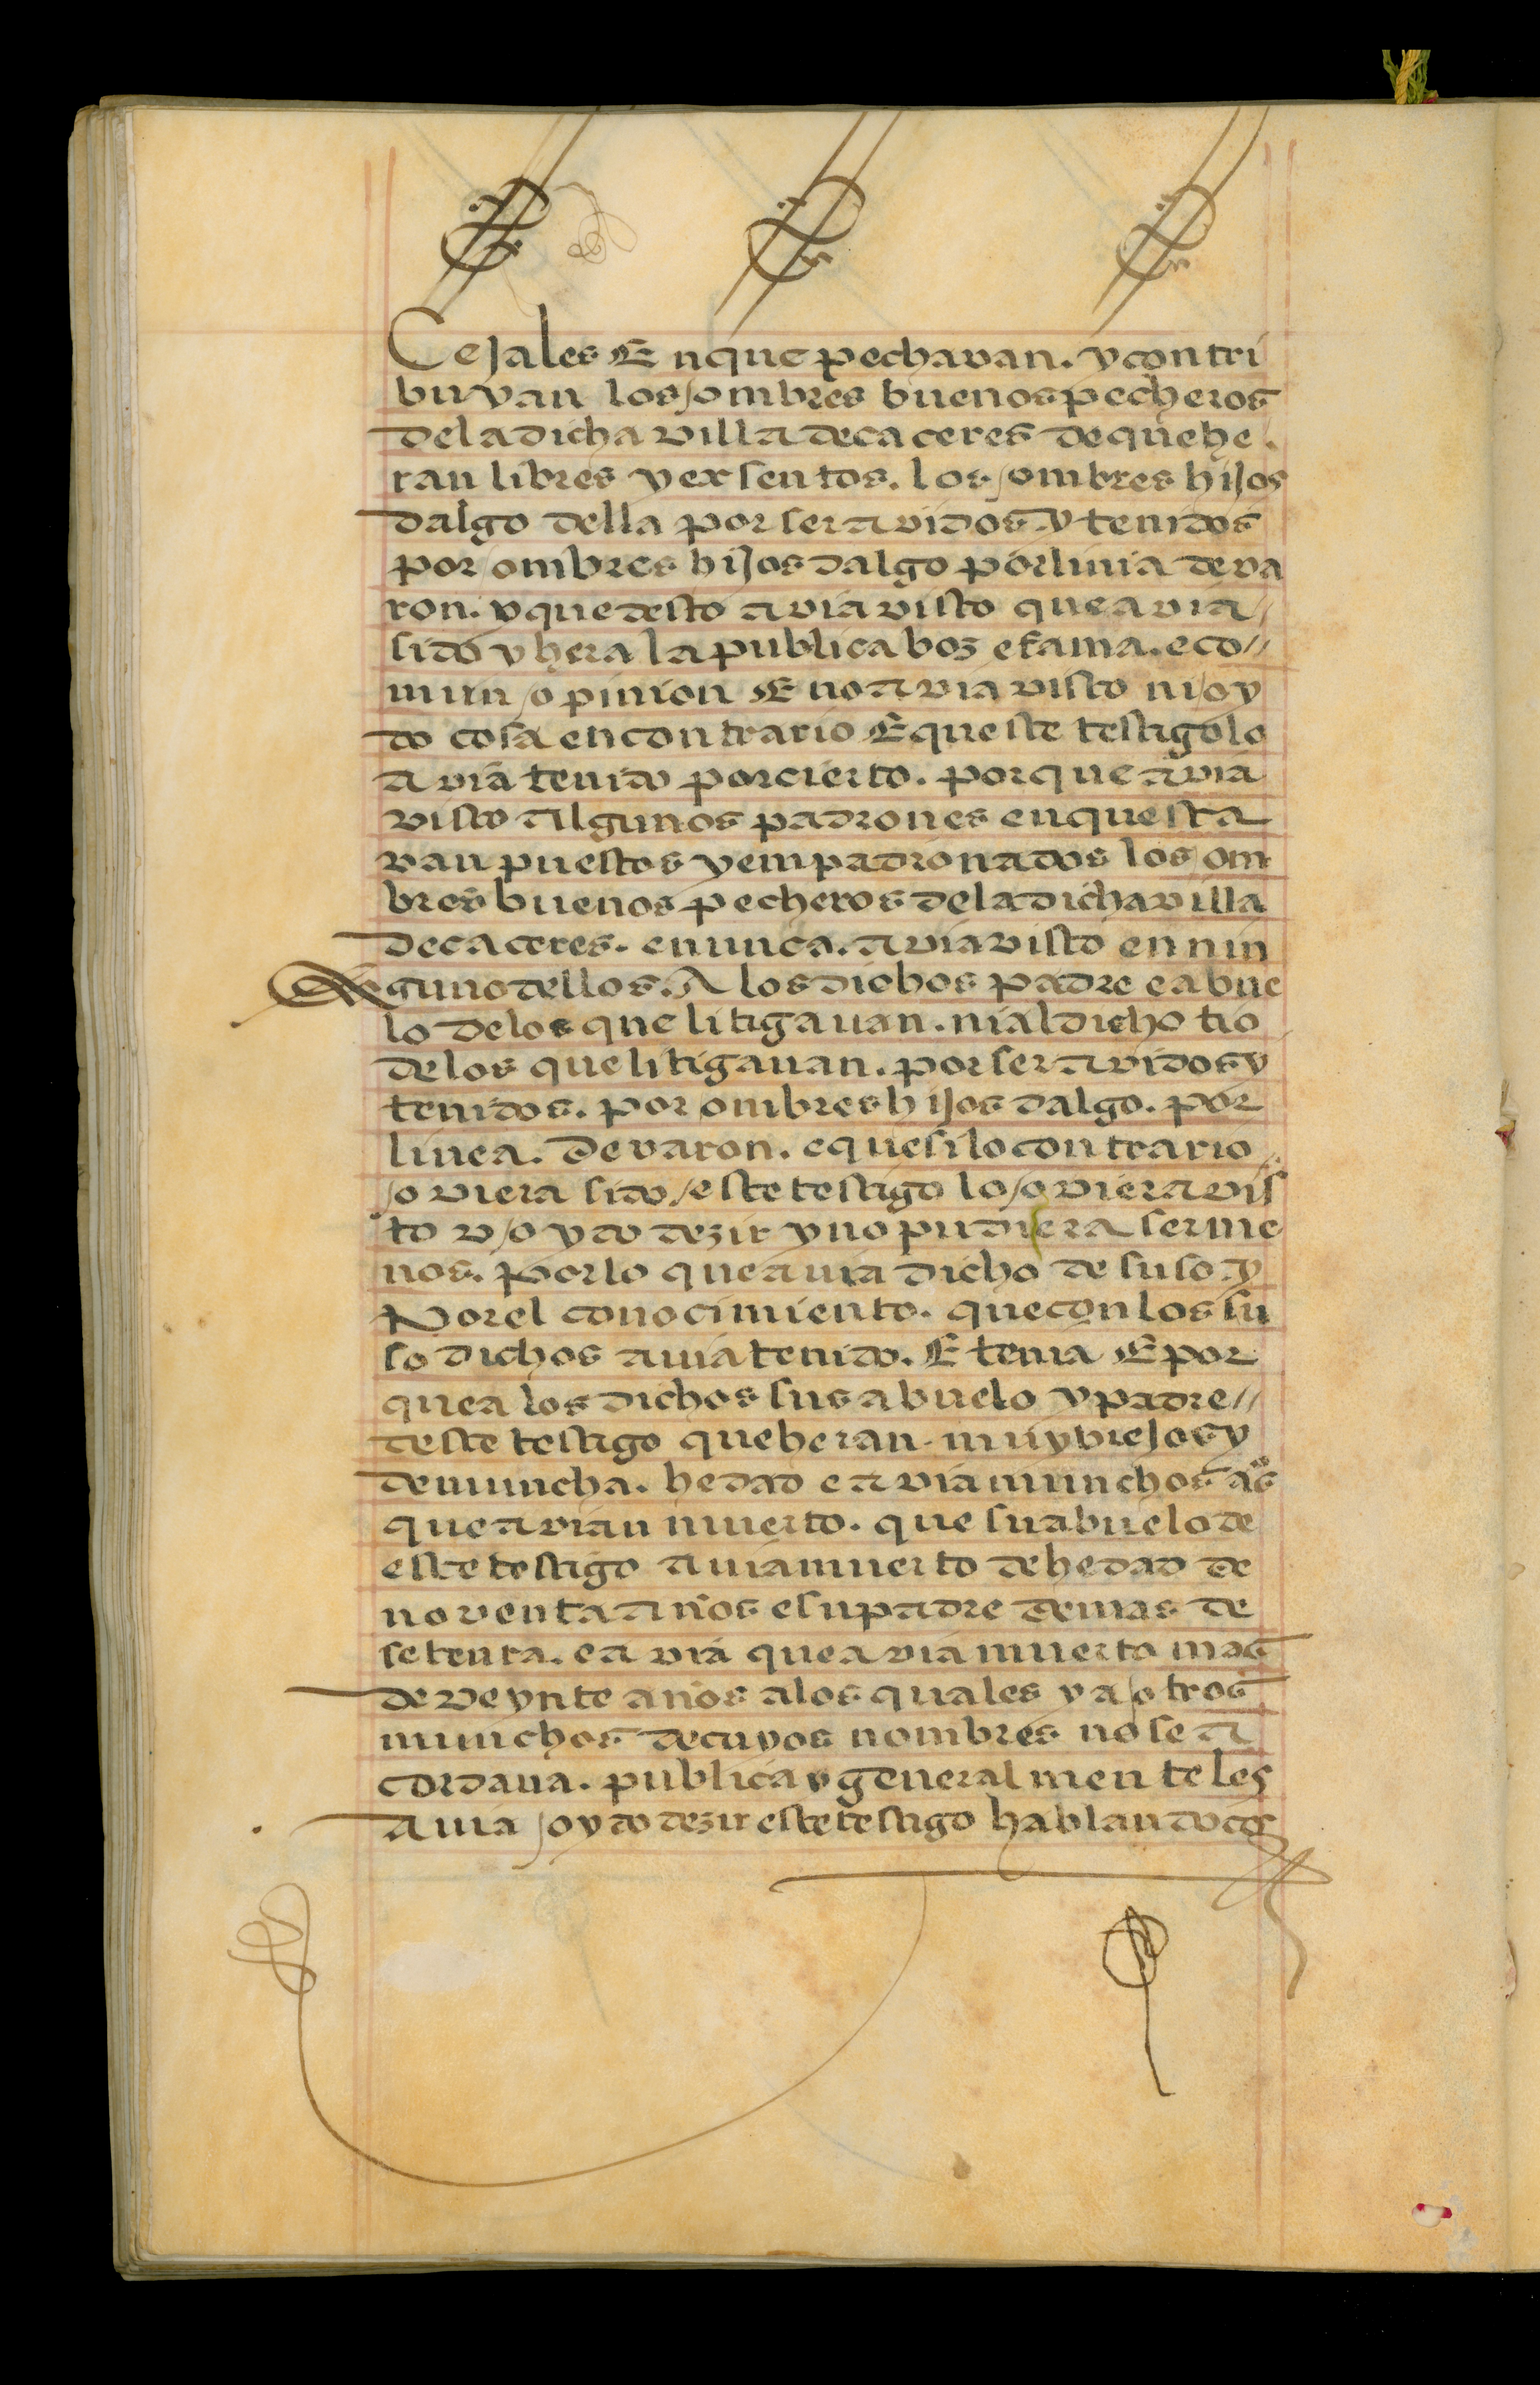 Cejales En que pechavan. y contri
buyan los ombres buenos pecheros
de la dicha villa de caceres de que he
ran libres y exsentos. los ombres hijos
dalgo della por ser avidos y tenidos
por ombres hijos dalgo por linia de va
ron. y que desto avia visto que avia //
sido y hera la publica boz e fama. e co //
mun opinion E no avia visto ni oy
do cosa en contrario E que ste testigo lo
avia tenido por cierto. por que avia
visto algunos padrones en questa
van puestos y empadronados los om
bres buenos pecheros de la dicha villa
de caceres. e nunca. avia visto en nin
guno dellos. A los dichos padre e abue
lo de los que litigauan. ni al dicho tio
de los que litigauan. por ser avidos y
tenidos. por ombres hijos dalgo. por
linea. de varon. e que si lo contrario
oviera sido este testigo lo oviera vis
to v oydo dezir y no pudiera ser me
nos. Por lo que auia dicho de suso y
Por el conocimiento. que con los su
so dichos auia tenido. E tenia E por
que a los dichos sus abuelo y padre //
deste testigo que heran muy viejos y
de muncha. hedad e avia munchos aos
que avian muerto. que su abuelo de
este testigo auia muerto de hedad de
noventa años e su padre de mas de
setenta. e avia que avia muerto mas
de veynte años a los quales y a otros
munchos de cuyos nombres no se a
cordaua. publica y general mente les
auia oydo dezir este testigo hablando co